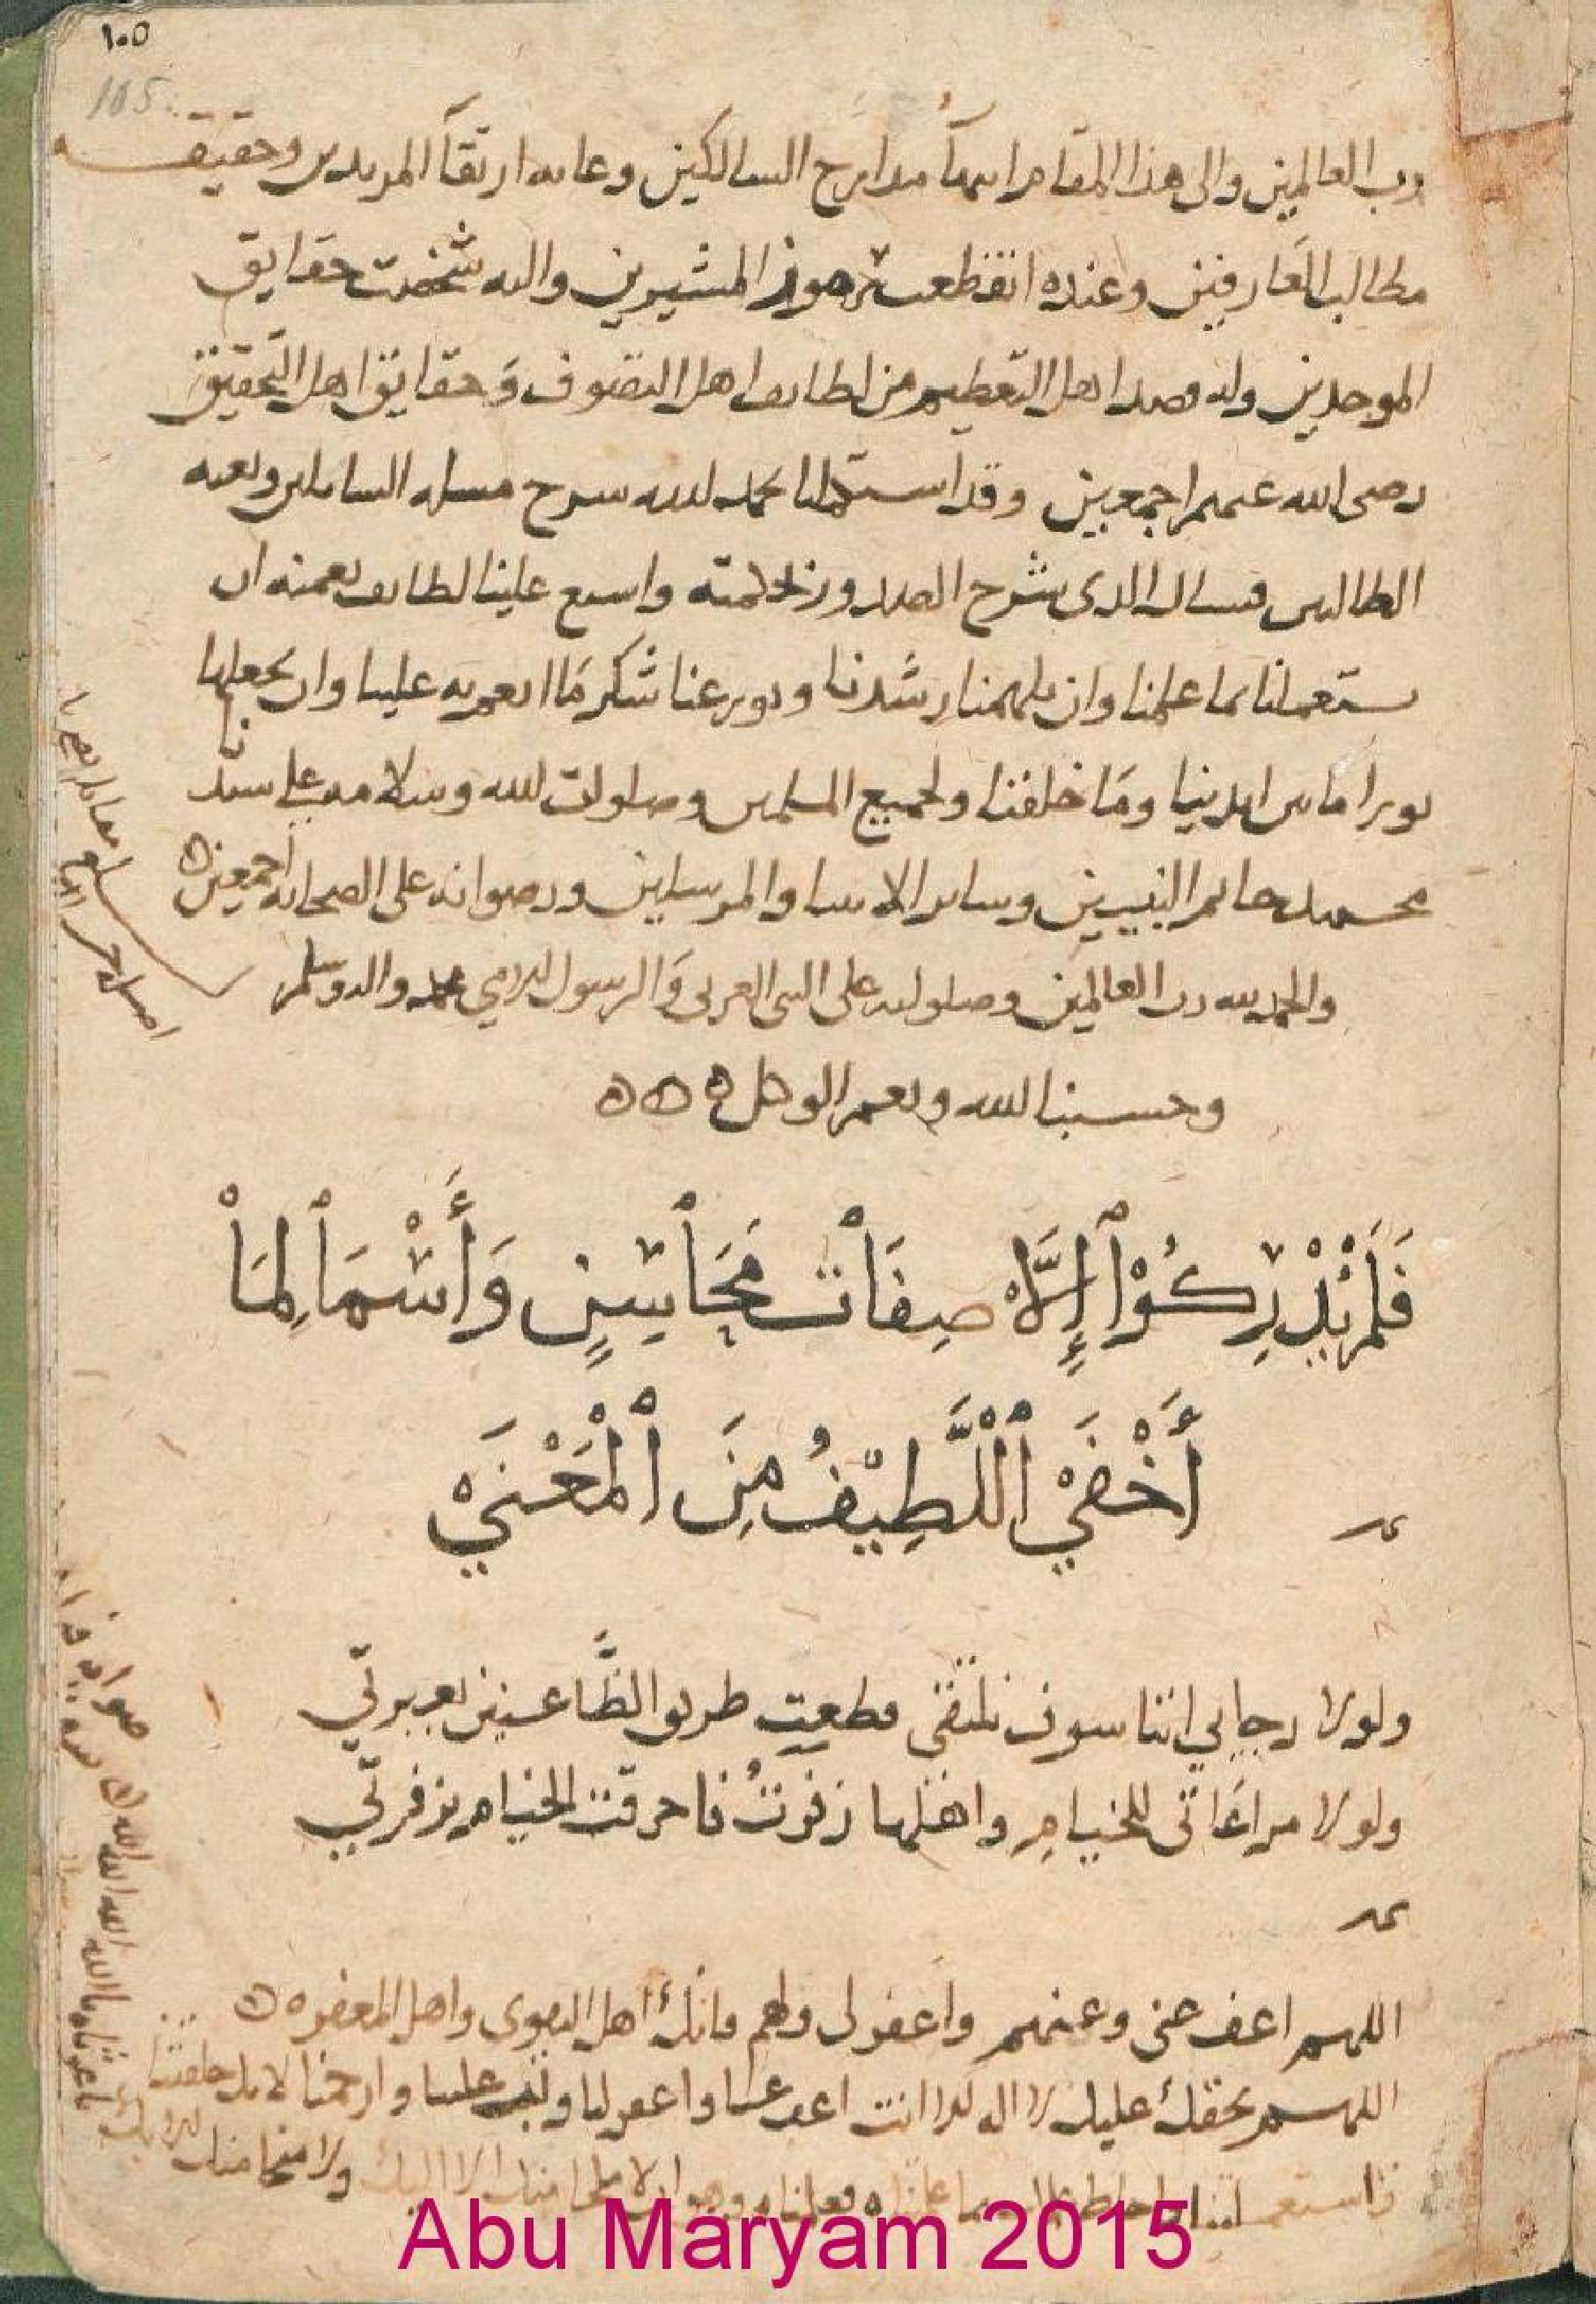 ١٠٥
105
رب العالمين والى هذا المقام انتهآ مدارج السالكين وغايه ارتقآ المريدين وحقيقه
مطالب العارفين وعنده انقطعت رموز المشيرين واليه شخصت حقايق
الموحدين وله قصد اهل التعظيم من لطايف اهل التصوف وحقايق اهل التحقيق
رضى الله عنهم اجمعين وقد استكملنا بحمد الله شرح مسله السايلين وبغيه
الطالبين فنسال الذى شرح الصدور لحكمته واسبغ علينا لطايف نعمته ان
يستعملنا بما علمنا وان يلهمنا رشدنا ويوزعنا شكر مَا انعم به علينا وان يجعلها
نورا ما بين ايدينا ومَا خلفنا ولجميع المسلمين وصلوات الله وسلامه على سيدنا
محمد خاتم النبيين وساير الانبيا والمرسلين ورضوانه على الصحابه أجمعين
والحمد لله رب العالمين وصلوات الله على النبى العربى وَالرسول الامي محمد واله وسلم
وحسبنا الله ونعم الوكيل
فَلَمْ يُدْرِكُوْا إِلَّا صِفَات مَحَاسِنٍ وَأَسْمَا لِمَا
أَخْفَي اللَّطِيْفُ مِنَ الْمَعْنَيْ
ولولا رجايي اننا سوف نلتقى قطعت طريق الظَّاعنين بعبرتّي
ولولا مراعَاتى للخيامِ واهلها زفرتُ فاحرقت الخيام بزفرتّي
اللهم اعف عنى وعنهم واغفر لى ولهم فانك أهل التقوى واهل المغفره
اللهم بحقك عليك لا اله الا انت اعف عنا واغفر لنا وتب علينا وارحمنا
الله الله الله الله يا الله
Abu Maryam 2015